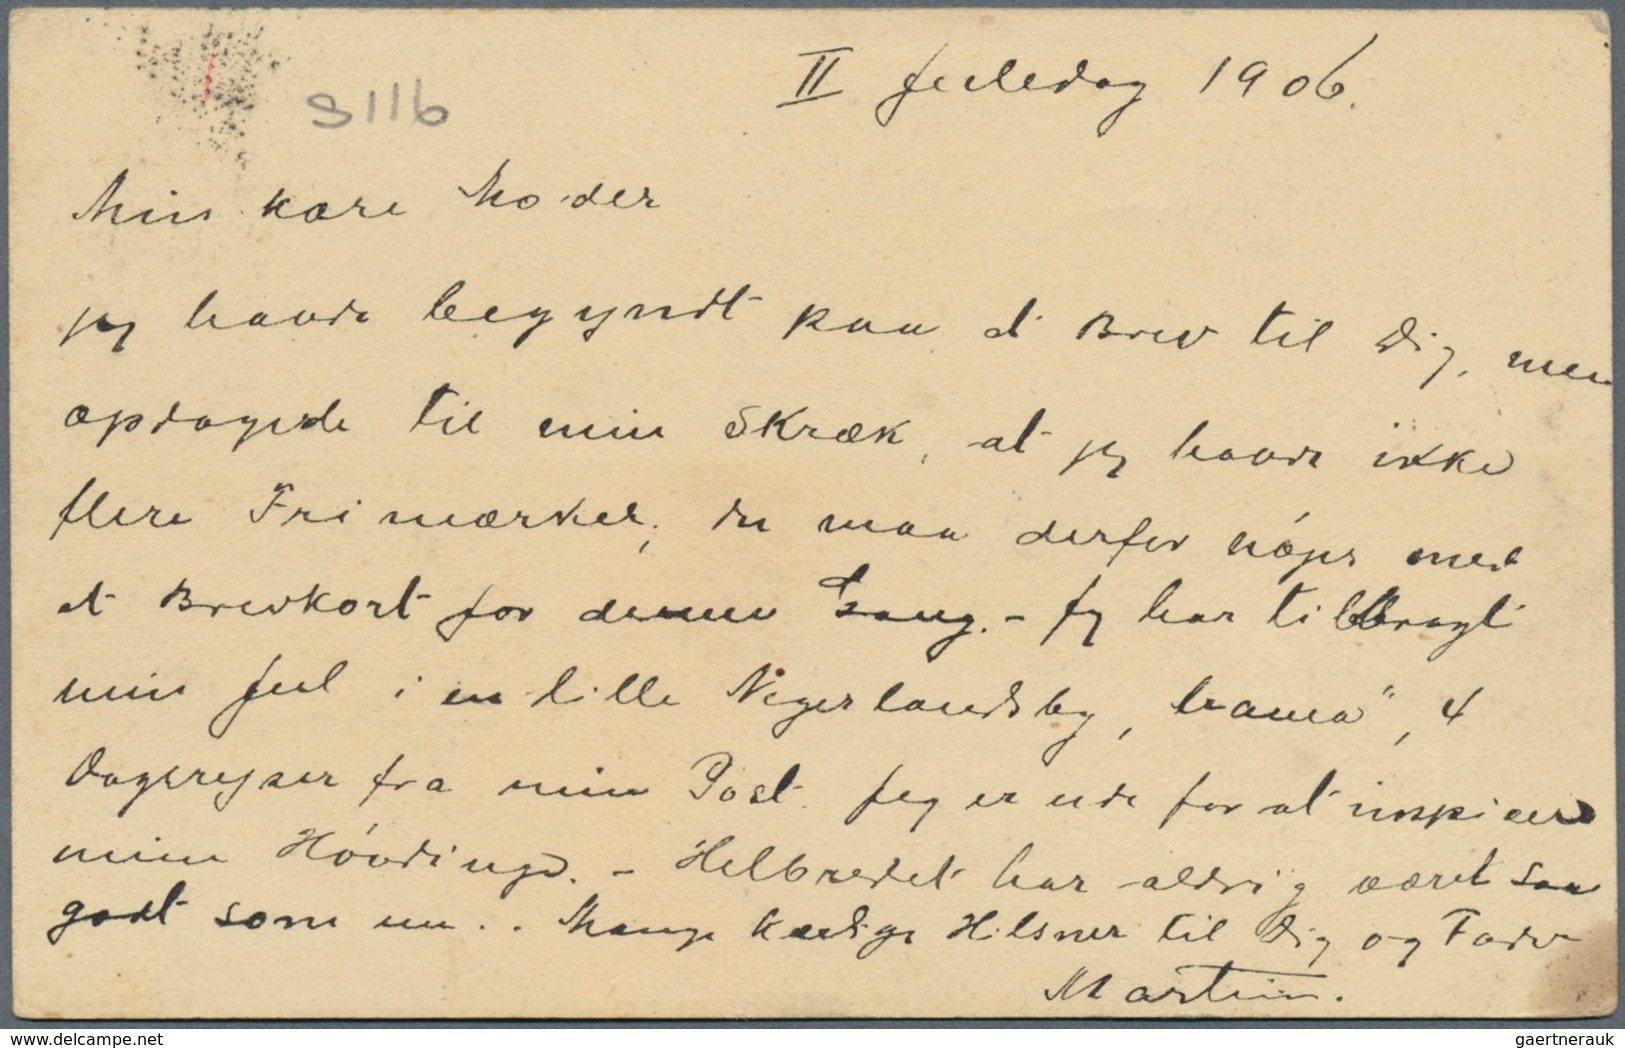 II Juledag 1906.
9116
Min kære Moder
jeg havde begyndt paa et Brev til Dig, men
opdagede til min Skræk, at jeg havde ikke
flere Frimærker, du maa derfor nøjes med
et Brevkort for denne Gang. – Jeg har tilbragt
min Jul i en lille Negerlandsby, 4
Dagsrejser fra min Post. Jeg er ude for at inspicere
mine Høvdinge. – Helbredet har aldrig været saa
godt som nu. . Mange kærlige Hilsner til Dig og Fader
Martin.
delcampe.net
gaertnerauk